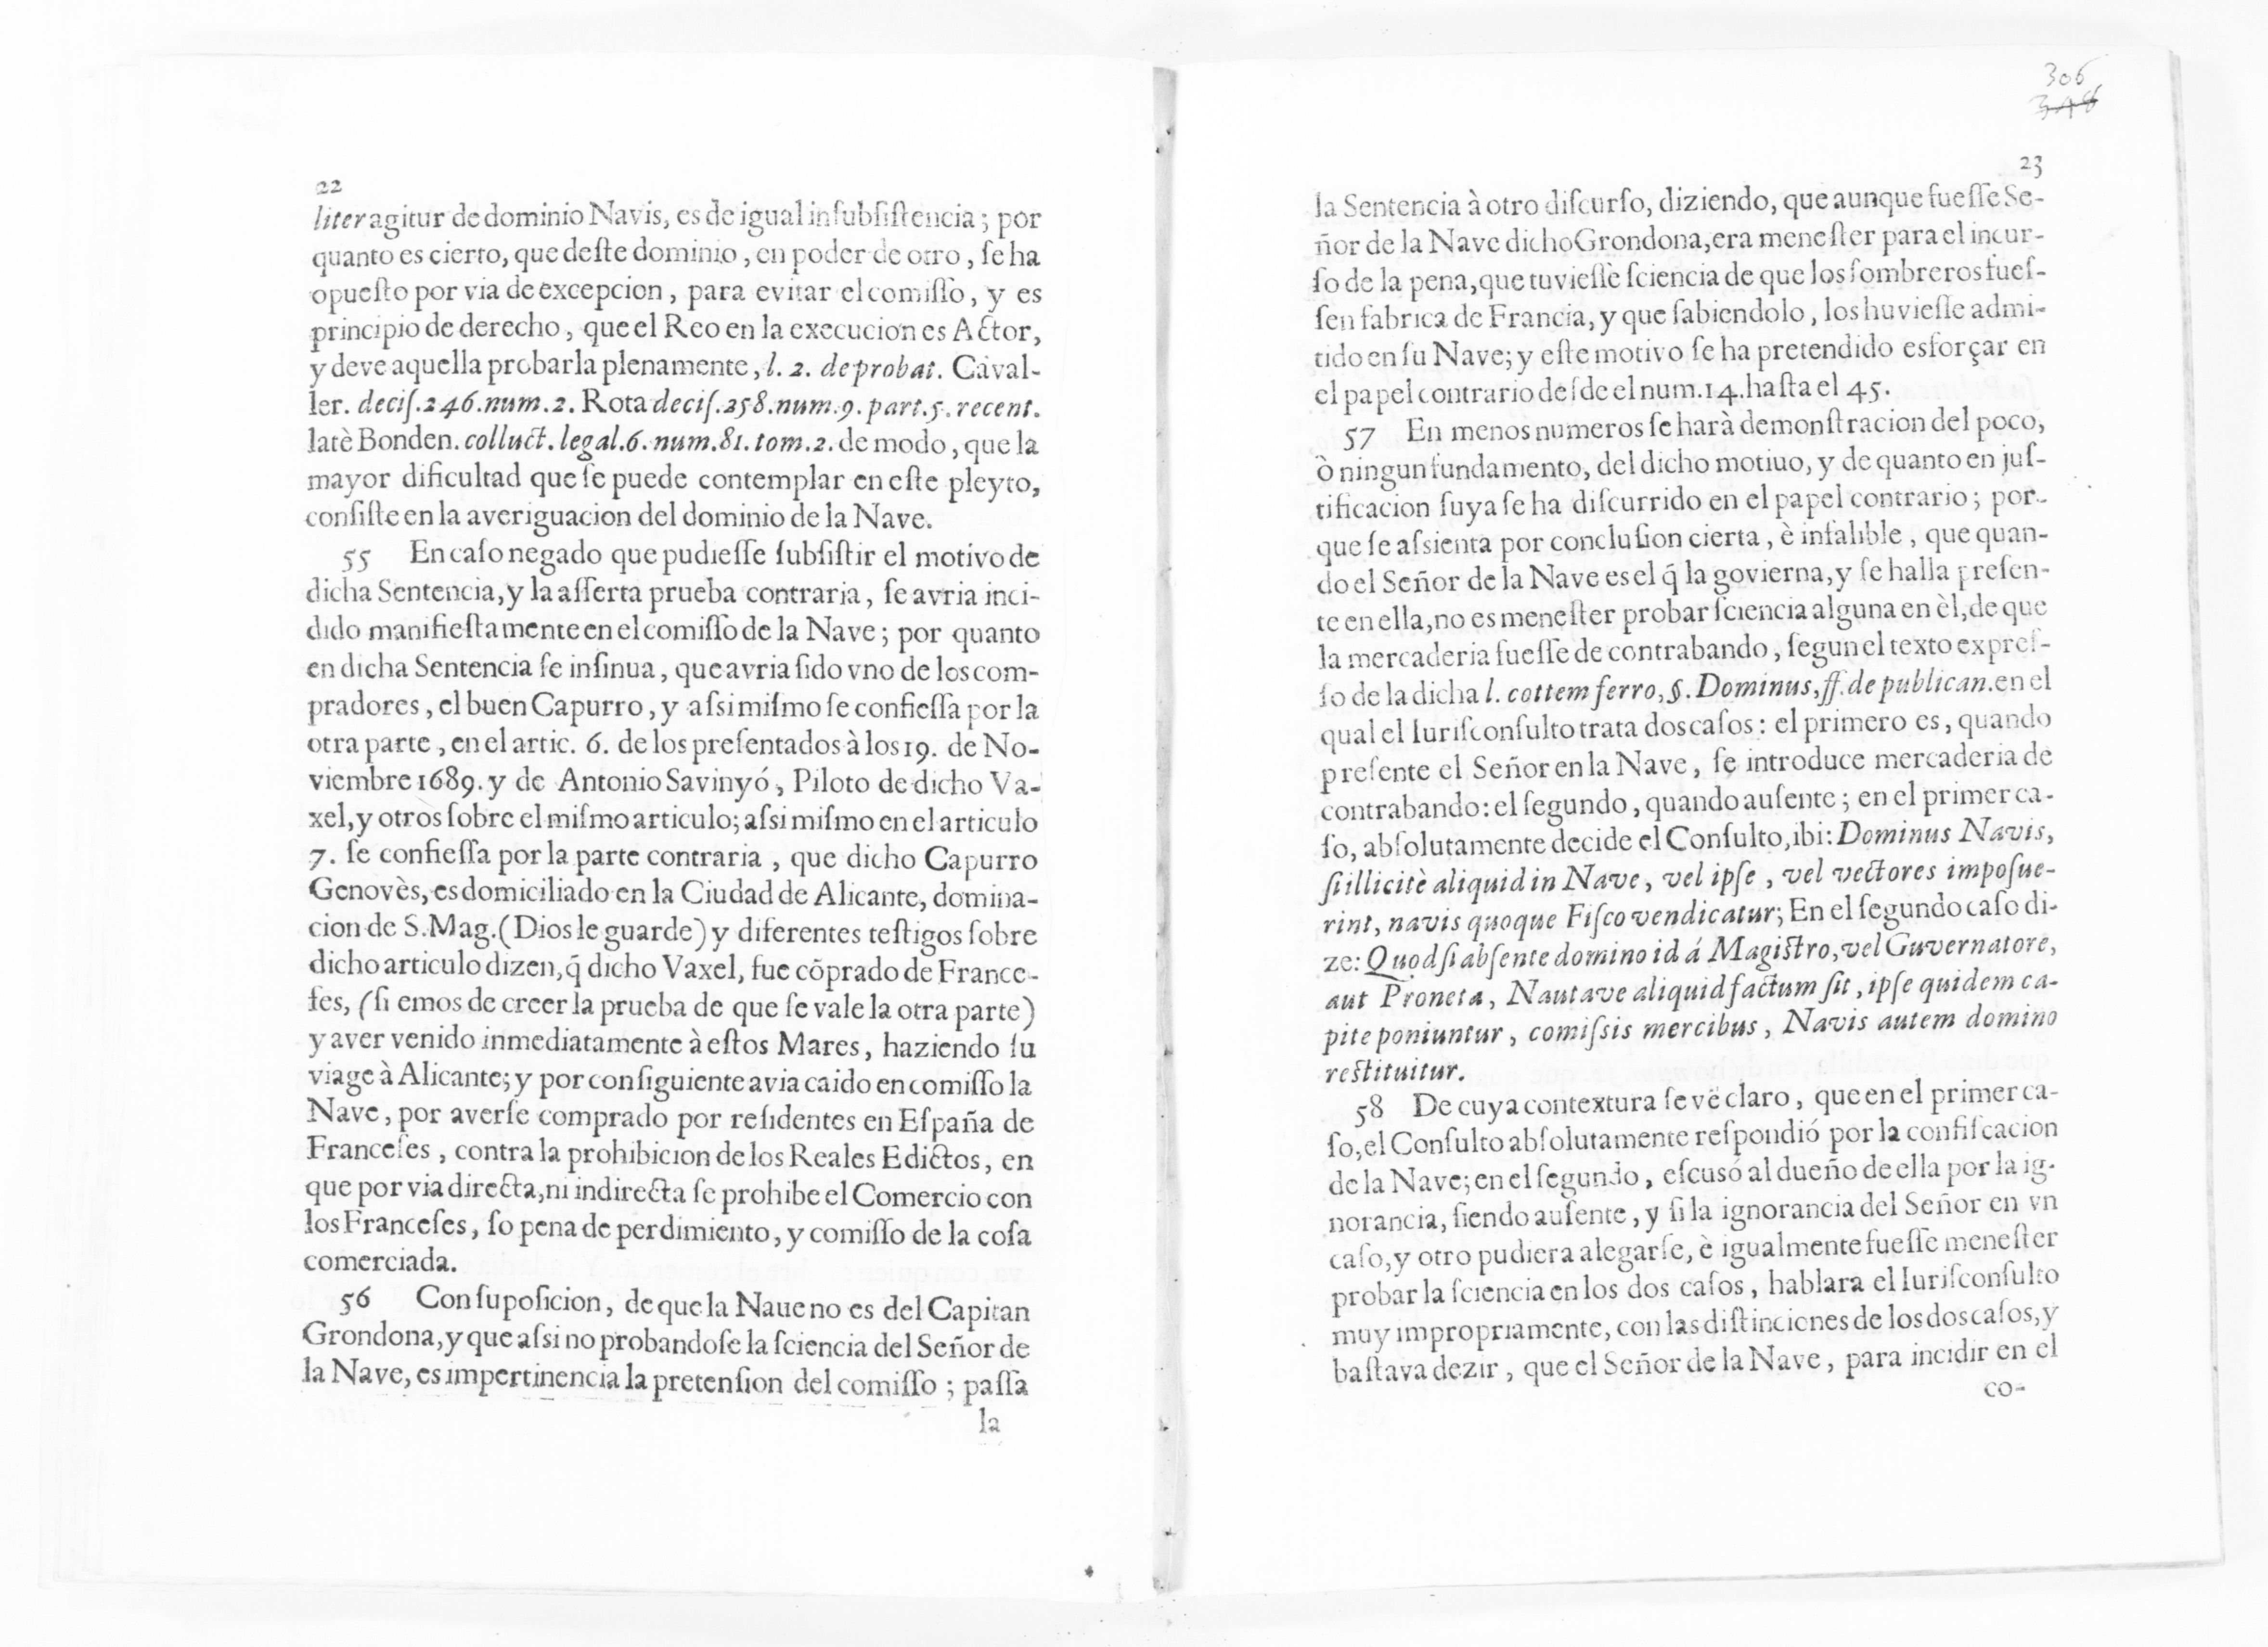 22
liter agitur de dominio Navis, es de igual insubsistencia; por
quanto es cierto, que deste dominio, en poder de otro, se ha
opuesto por via de excepcion, para evitar el comisso, y es
principio de derecho, que el Reo en la execucion es Actor,
y deve aquella probarla plenamente, l. 2. de probat. Caval-
ler. decis. 246. num. 2. Rota decis. 258. num. 9. part. 5. recent.
latè Bonden. colluct. legal. 6. num. 81. tom. 2. de modo, que la
mayor dificultad que se puede contemplar en este pleyto,
consiste en la averiguacion del dominio de la Nave.
55 En caso negado que pudiesse subsistir el motivo de
dicha Sentencia, y la asserta prueba contraria, se avria inci-
dido manifiestamente en el comisso de la Nave; por quanto
en dicha Sentencia se insinua, que avria sido vno de los com-
pradores, el buen Capurro, y assimismo se confiessa por la
otra parte, en el artic. 6. de los presentados à los 19. de No-
viembre 1689. y de Antonio Savinyó, Piloto de dicho Va-
xel, y otros sobre el mismo articulo; assi mismo en el articulo
7. se confiessa por la parte contraria, que dicho Capurro
Genovès, es domiciliado en la Ciudad de Alicante, domina-
cion de S. Mag. (Dios le guarde) y diferentes testigos sobre
dicho articulo dizen, q̃ dicho Vaxel, fue cõprado de France-
ses, (si emos de creer la prueba de que se vale la otra parte)
y aver venido inmediatamente à estos Mares, haziendo su
viage à Alicante; y por consiguiente avia caido en comisso la
Nave, por averse comprado por residentes en España de
Franceses, contra la prohibicion de los Reales Edictos, en
que por via directa, ni indirecta se prohibe el Comercio con
los Franceses, so pena de perdimiento, y comisso de la cosa
comerciada.
56 Con suposicion, de que la Naue no es del Capitan
Grondona, y que assi no probandose la sciencia del Señor de
la Nave, es impertinencia la pretension del comisso; passa
la
306
348
23
la Sentencia à otro discurso, diziendo, que aunque fuesse Se-
ñor de la Nave dicho Grondona, era menester para el incur-
so de la pena, que tuviesse sciencia de que los sombreros fues-
sen fabrica de Francia, y que sabiendolo, los huviesse admi-
tido en su Nave; y este motivo se ha pretendido esforçar en
el papel contrario desde el num. 14. hasta el 45.
57 En menos numeros se harà demonstracion del poco,
ò ningun fundamento, del dicho motiuo, y de quanto en jus-
tificacion suya se ha discurrido en el papel contrario; por-
que se assienta por conclusion cierta, è infalible, que quan-
do el Señor de la Nave es el q̃ la govierna, y se halla presen-
te en ella, no es menester probar sciencia alguna en èl, de que
la mercaderia fuesse de contrabando, segun el texto expres-
so de la dicha l. cottem ferro, §. Dominus, ff. de publican. en el
qual el Iurisconsulto trata dos casos: el primero es, quando
presente el Señor en la Nave, se introduce mercaderia de
contrabando: el segundo, quando ausente; en el primer ca-
so, absolutamente decide el Consulto, ibi: Dominus Navis,
si illicitè aliquid in Nave, vel ipse, vel vectores imposue-
rint, navis quoque Fisco vendicatur; En el segundo caso di-
ze: Quod si absente domino id á Magistro, vel Guvernatore,
aut Proneta, Nautave aliquid factum sit, ipse quidem ca-
pite poniuntur, comissis mercibus, Navis autem domino
restituitur.
58 De cuya contextura se vë claro, que en el primer ca-
so, el Consulto absolutamente respondió por la confiscacion
de la Nave; en el segundo, escusó al dueño de ella por la ig-
norancia, siendo ausente, y si la ignorancia del Señor en vn
caso, y otro pudiera alegarse, è igualmente fuesse menester
probar la sciencia en los dos casos, hablara el Iurisconsulto
muy impropriamente, con las distinciones de los dos casos, y
bastava dezir, que el Señor de la Nave, para incidir en el
co-